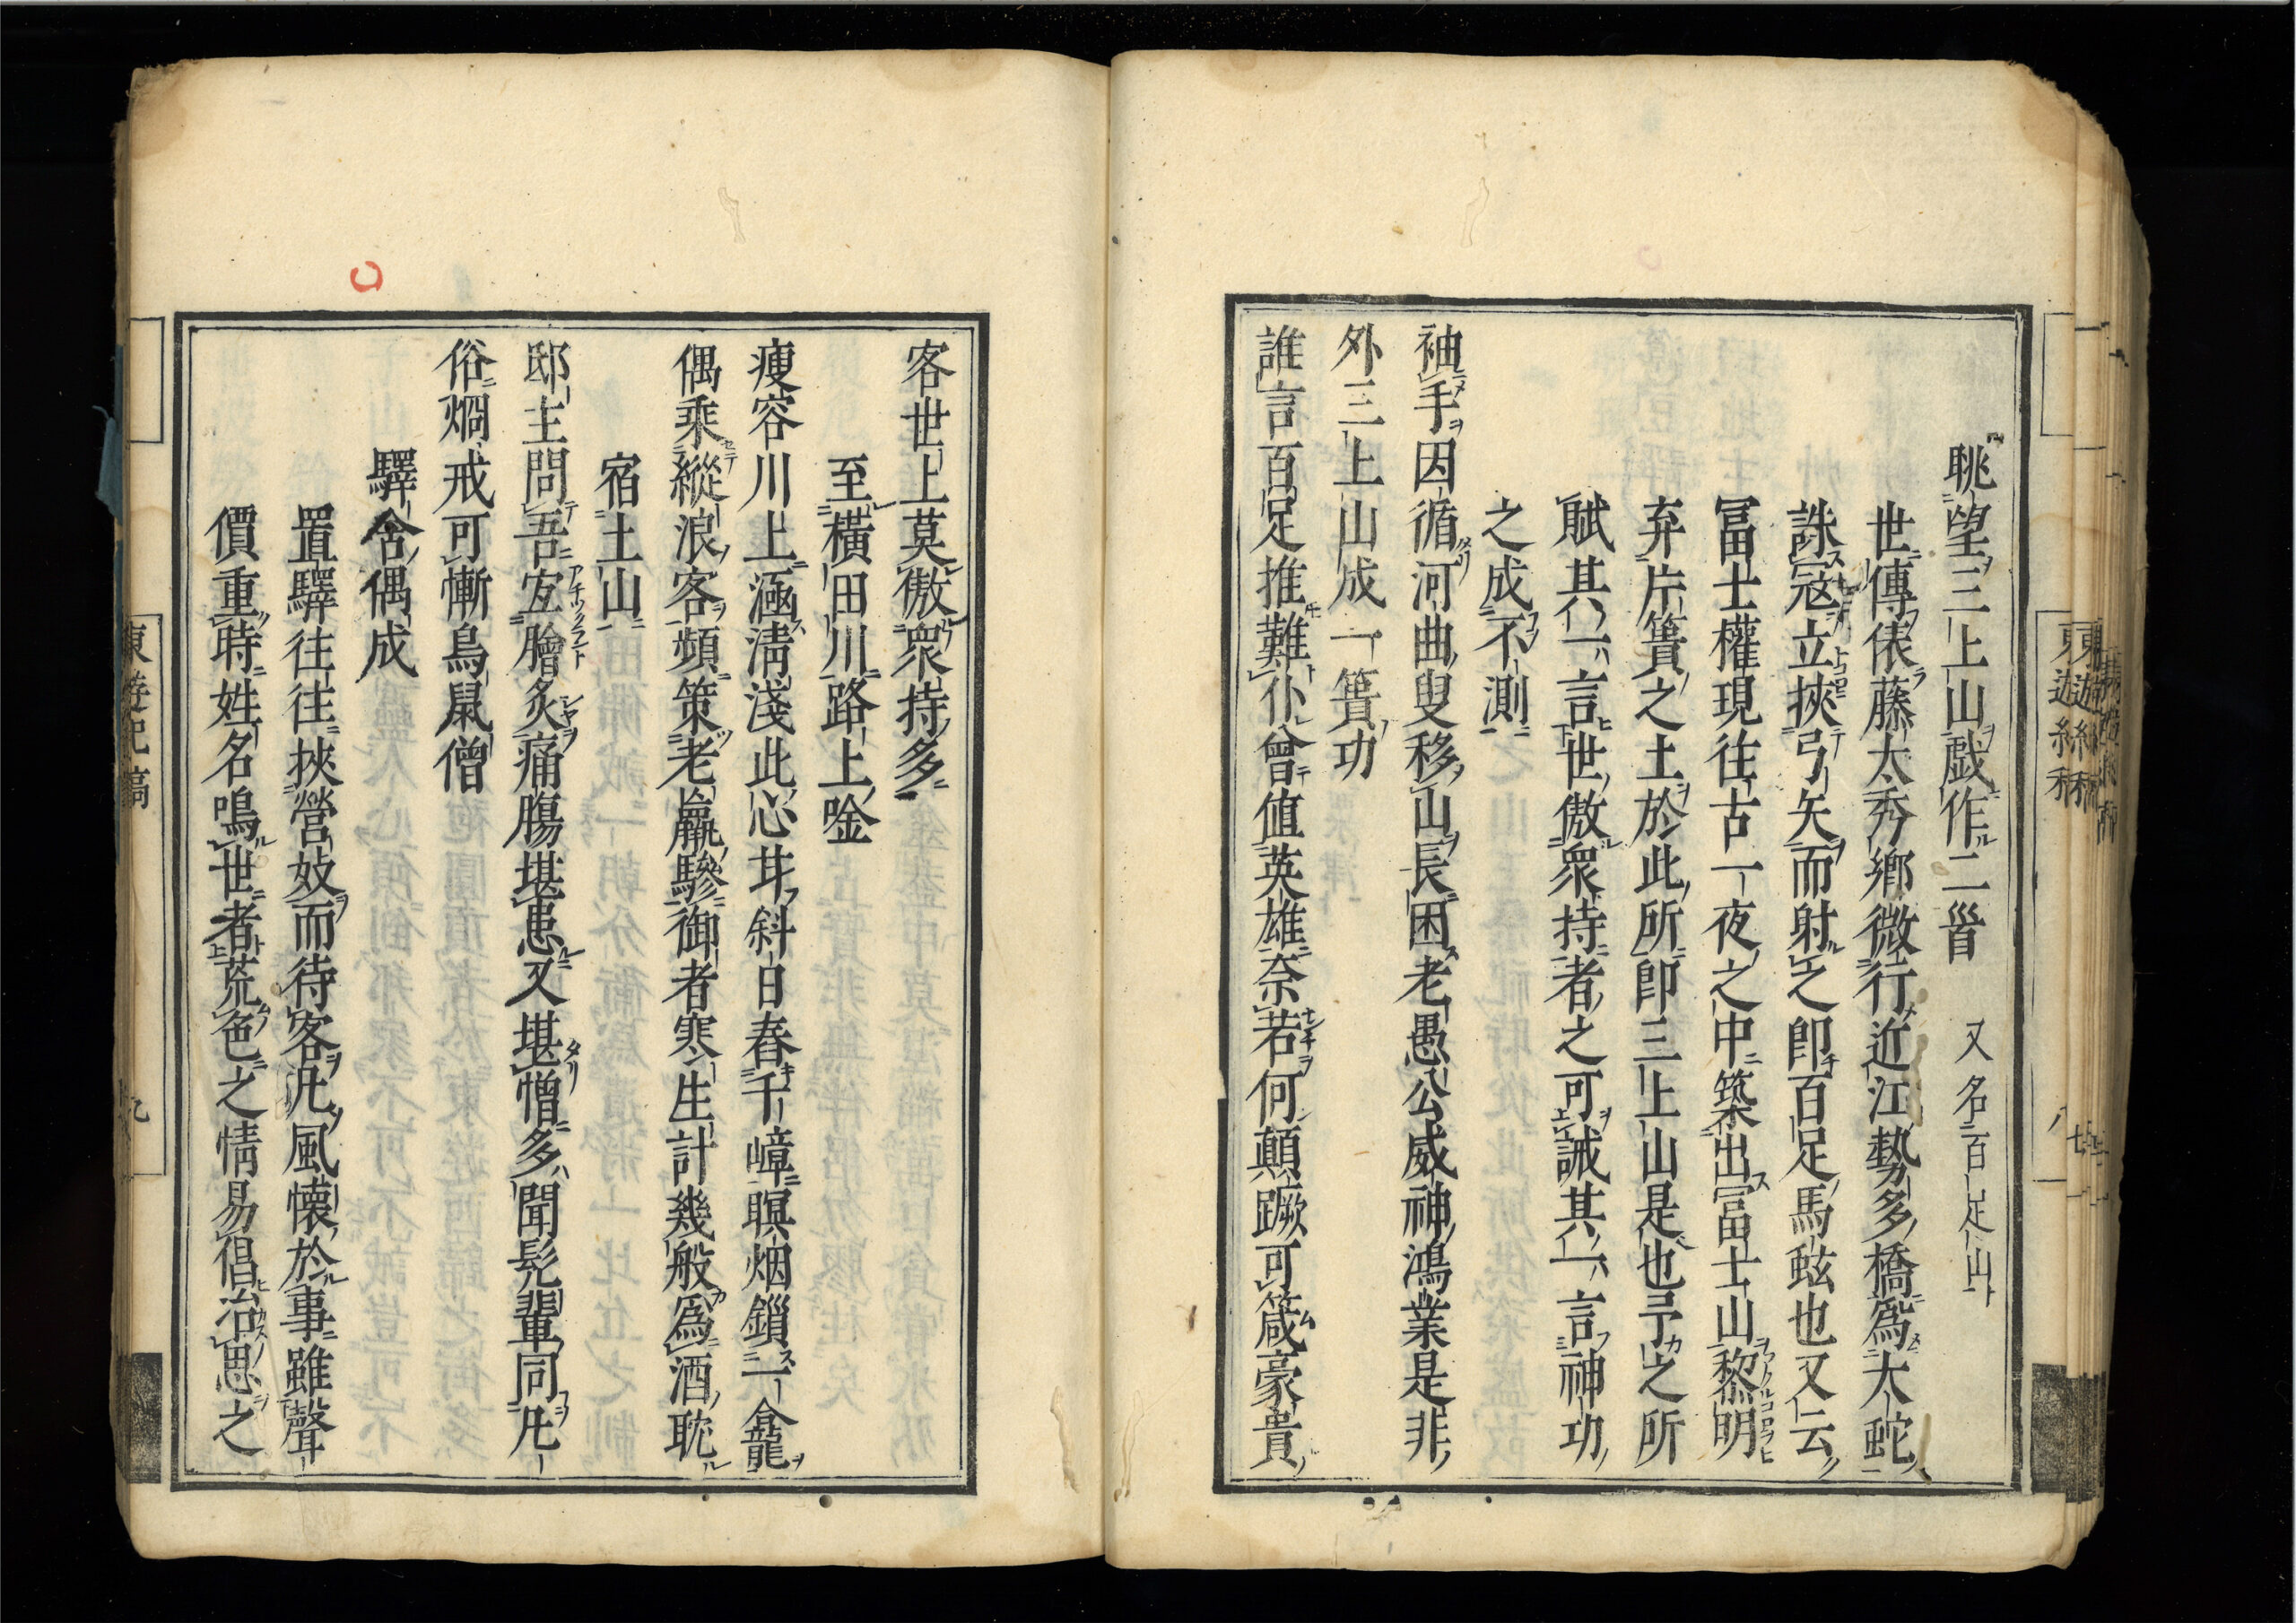 眺望三上山戯作二首 又名百足山
世傳俵藤太秀鄉微行近江勢多橋爲大蛇
誅寇立挾弓矢而射之即百足馬蚿也又云
冨士權現往古一夜之中築出冨士山黎明
弃片簣之土於此所即三上山是也予之所
賦其一言世傲衆恃者之可誡其一言神功
之成不測
袖手因循河曲叟移山長困老愚公威神鴻業是非
外三上山成一簣功
誰言百足推難仆曾値英雄奈若何顛蹶可箴豪貴
客世上莫傲衆恃多
至横田川路上唫
瘦容川上涵淸淺此心茸斜日春千嶂暝烟鎻一龕
偶乘縱浪客頻策老羸驂御者寒生計幾般爲酒耽
宿土山
邸主問吾宜膾炙痛膓堪患又堪憎多聞髡輩同凡
俗烱戒可慚鳥鼠僧
驛舍偶成
置驛往往挾營妓而待客凡風懷於事雖聲
價重時姓名鳴世者荒色之情易倡冶思之
東遊紀稿
九